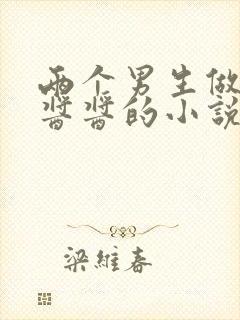 两个男生做
酱酱的小说
梁維春